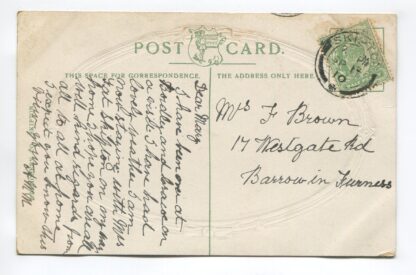 POST CARD.
THIS SPACE FOR CORRESPONDENCE.
THE ADDRESS ONLY HERE.
SKIPTON
10
Dear Mary
I have been on at
& on
a visit I have had
lovely weather I am
now staying with Mrs
Skipton on my way
home I hope you are all
well kind regards from
all to all at home
I expect you know this
Mrs F Brown
17 Westgate Rd
Barrow in Furness